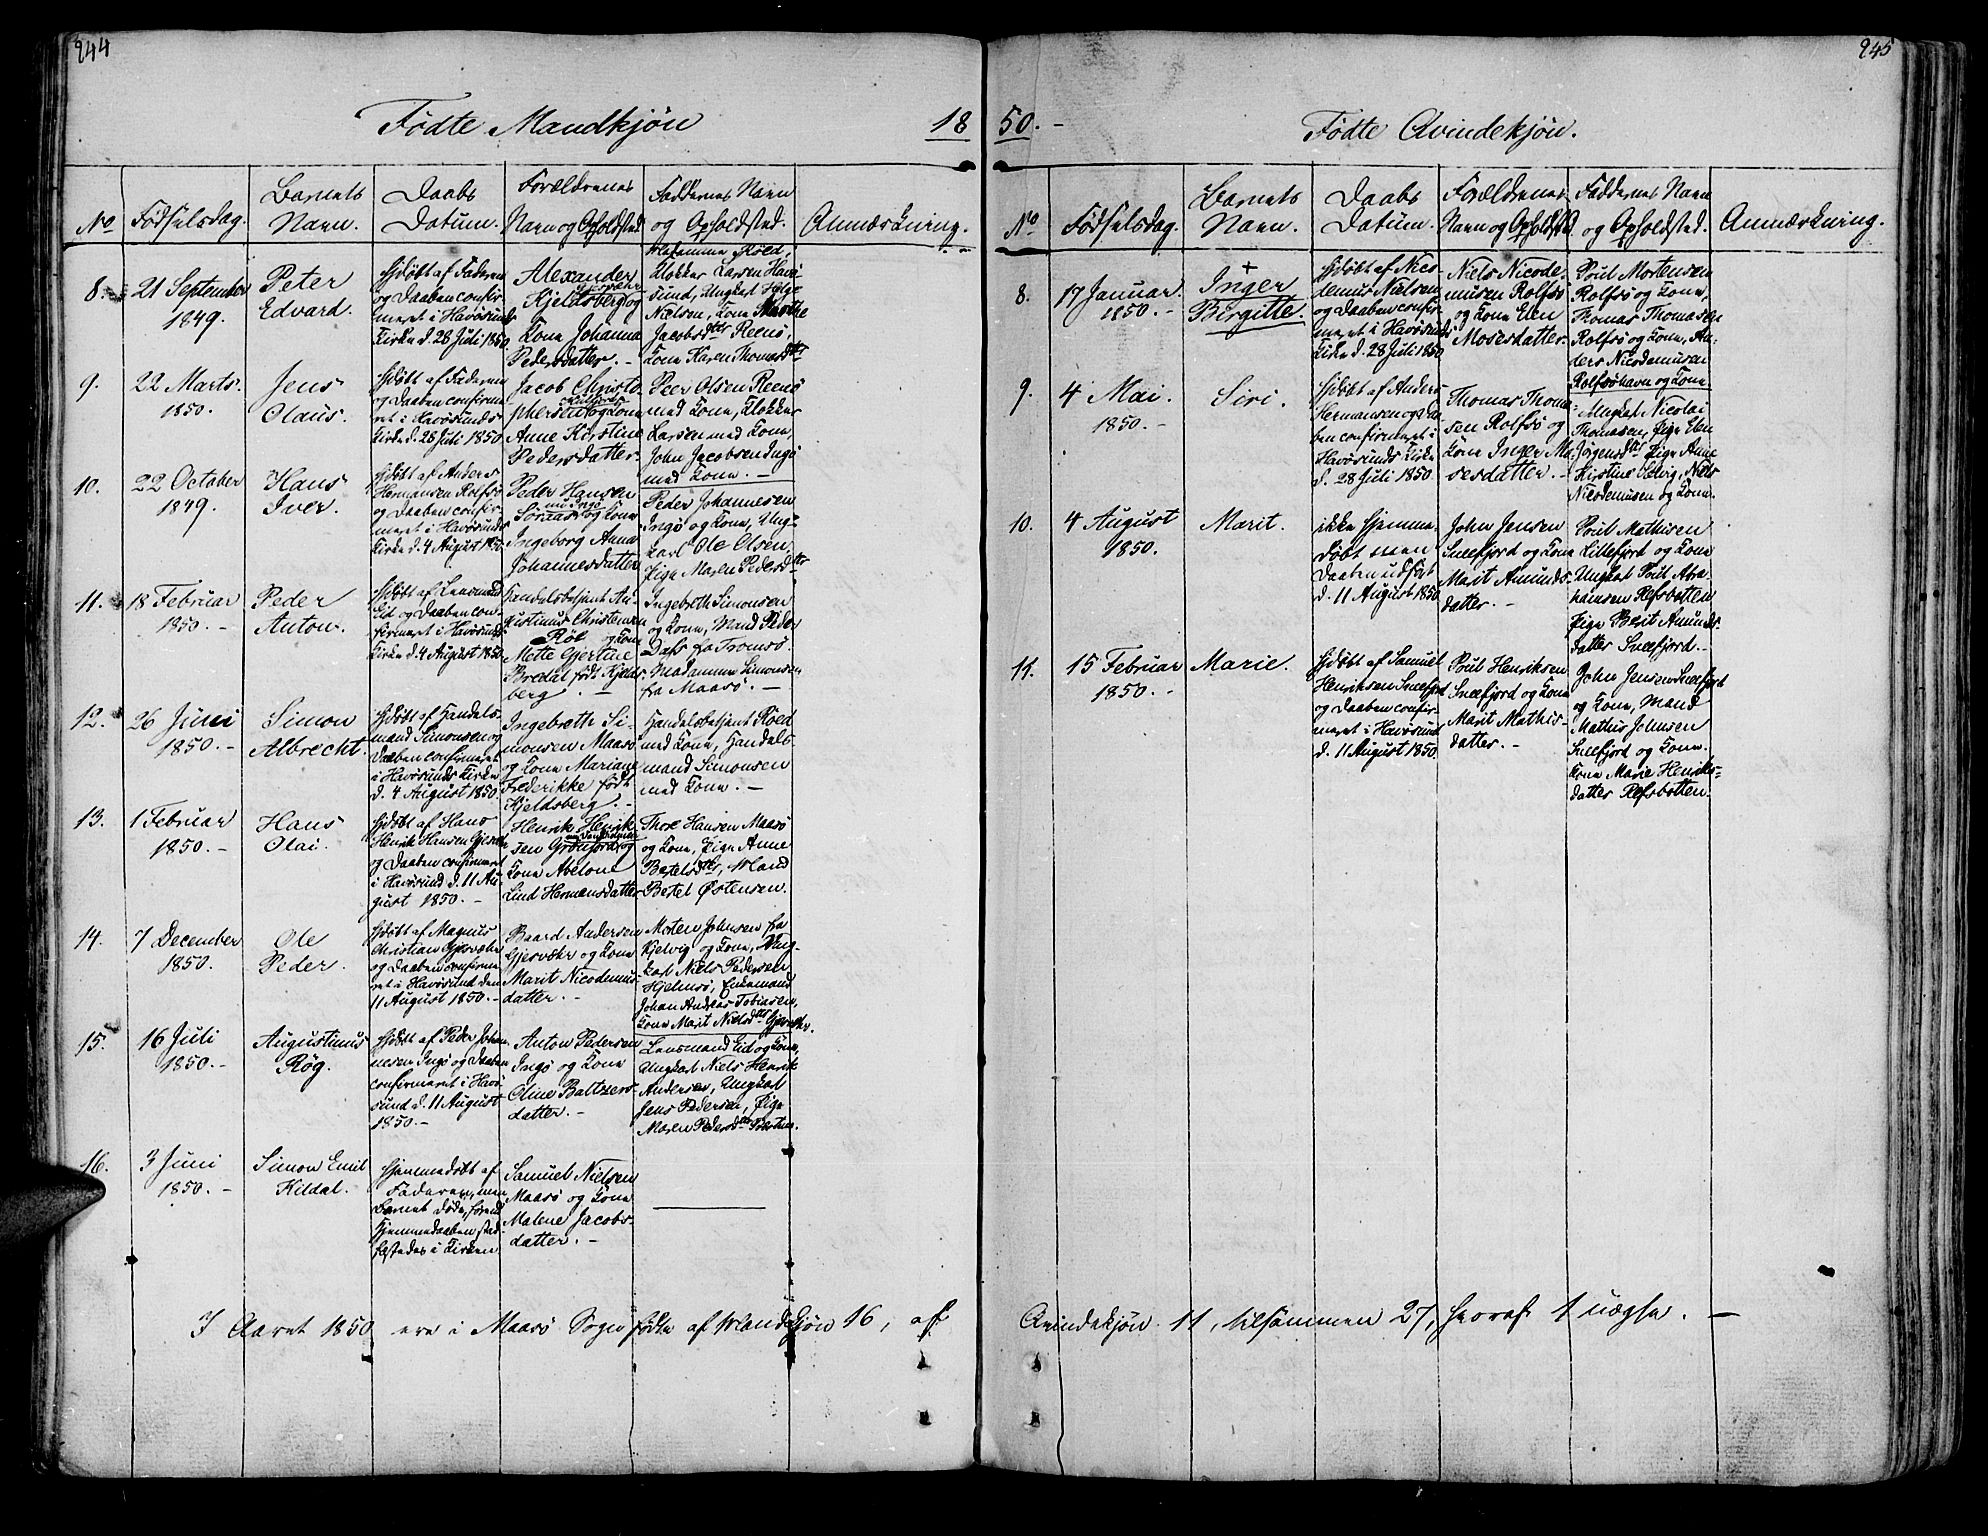 244
Fødte Mandkjøn 18
No
Fødselsdag.
Barnets
Navn.
Daabs
Datum.
Forældrenes
Navn og Opholdsted
Faddernes Navn
og Opholdsted.
Anmærkning.
8.
21 September
1849.
Peter
Edvard.
Hjdøbt af Faderen
og Daaben confir-
meret i Havösunds
Kirke d. 28 Juli 1850
Alexander
Kjeldsberg og
Kone Johanna
Pedersdatter. -
Madamme Röed,
Klokker Larsen Havö-
sund, Ungkarl Helge
Nielsen, Kone Marthe
Jacobsdtr Reenö,
Kone Karen Thomasdtr
9.
22 Marts.
1850.
Jens
Olaus.
Hjdøbt af Faderen
og Daaben confirme-
ret i Havösunds
Kirke d. 28 Juli 1850
Jacob Christo-
phersen og Kone
Anne Kirstine
Pedersdatter.
Peer Olsen Reenö
med Kone, Klokker
Larsen med Kone,
John Jacobsen Ingö
med Kone. -
10.
22 October
1849.
Hans
Iver.
Hjdøbt af Anders
Hermansen Rolfsö
og Daaben confir-
meret i Havösunds
Kirke d. 4 August 1850
Peder Hansen
og Kone
Ingeborg Anna
Johannesdatter
Peder Johannesen
Ingö og Kone, Ung-
karl Ole Olsen,
Pige Maren Pedersdtr
11.
18 Februar
1850. -
Peder
Anton.
Hjdøbt af Lensmand
Eid og Daaben con-
firmeret i Havösunds
Kirke d. 4 August 1850
Handelsbetjent Au-
gustinus Christensen
Röe og Kone
Mette Gjertine
Bredal født Kjelds-
berg. -
Ingebreth Simonsen
og Kone, Mand Peder
Dass fra Tromsö.
Madamme Simonsen
fra Maasö. -
12.
26 Juni
1850. -
Simon
Albrecht.
Hjdøbt af Handels-
mand Simonsen og
Daaben confirmeret
i Havösunds Kirke
d. 4 August 1850.
Ingebreth Si-
monsen Maasö
og Kone Mariane
Frederikke født
Kjeldsberg. -
Handelsbetjent Röed
med Kone, Handels-
mand Simonsen
med Kone. -
13.
1 Februar
1850. -
Hans
Olai.
Hjdøbt af Hans
Henrik Hansen
og Daaben confirmeret
i Havösund d. 11 Au-
gust 1850. -
Henrik Henrik-
sen og
Kone Abelone
Lind Hermansdatter
Thore Hansen Maasö
og Kone, Pige Anne
Bertelsdtr, Mand
Bertel Østensen.
14.
7 December
1850.
Ole
Peder.
Hjdøbt af Magnus
Christian Gjesvæhr
og Daaben confirme-
ret i Havösund den
11 August 1850. -
Baard Andersen
Gjesvæhr og Kone
Marit Nicodemus-
datter. -
Morten Johnsen fra
Kjelvig og Kone, Ung-
karl Niels Pedersen
Hjelmsö, Enkemand
Johan Andreas Tobiasen,
Kone Marit Nielsdtr Gjesvæhr.
15.
16 Juli
1850. -
Augustinus
Rög.
Hjdøbt af Peder Johan-
nesen Ingö og Daaben
confirmeret i Havö-
sund d. 11 August
1850. -
Anton Pedersen
Ingö og Kone
Oline Baltzers-
datter. -
Lensmand Eid og Kone,
Ungkarl Niels Henrik
Andersen, Ungkarl
Jens Pedersen, Pige
Maren Pedersdtr
16.
3 Juni
1850. -
Simon Emil
Kildal.
Hjemmedøbt af
Faderen, men
Barnet døde, førend
Hjemmedaaben stad-
fæstedes i Kirken
Samuel Nielsen
Maasö og Kone
Malene Jacobs-
datter. -
I Aaret 1850 ere i Maasö Sogn fødte af Mandkjøn 16, af
245
50. -
Fødte Qvindekjøn.
No
Fødselsdag.
Barnets
Navn.
Daabs
Datum.
Forældrenes
Navn og Opholdsted
Faddernes Navn
og Opholdsted.
Anmærkning.
8.
17 Januar.
1850. -
+
Inger
Birgitte.
Hjdøbt af Nico-
demus Nielsen
og Daaben confir-
meret i Havösunds
Kirke d. 28 Juli 1850
Niels Nicode-
musen Rolfsö
og Kone Elen
Mosesdatter.
Poul Mortensen
Rolfsö og Kone,
Thomas Thomasen
Rolfsö og Kone, An-
ders Nicodemusen
Rolfsöhavn og Kone
9.
4 Mai.
1850. -
Siri.
Hjdøbt af Anders
Hermansen og Daa-
ben confirmeret i
Havösunds Kirke
d. 28 Juli 1850
Thomas Thoma-
sen Rolfsö og
Kone Inger Mo-
sesdatter. -
Ungkarl Nicolai
Thomasen, Pige Elen
Jörgensdtr, Pige Anne
Kirstine Selvig, Niels
Nicodemusen og Kone.
10.
4 August
1850.
Marit.
ikke hjemme-
døbt men
Daaben udført
d. 11 August 1850
John Jensen
Sneefjord og Kone
Marit Amunds-
datter. -
Poul Mathisen
Lillefjord og Kone
Ungkarl Poul Abra-
hamsen Refsbotten
Pige Berit Amunds-
datter Sneefjord. -
11.
15 Februar
1850. -
Marie.
Hjdøbt af Samuel
Henriksen Sneefjord
og Daaben confir-
meret i Havösund
d. 11 August 1850.
Poul Henriksen
Sneefjord og Kone
Marit Mathis-
datter. -
John Jensen Sneefjord
og Kone, Mand
Mathis Johnsen
Sneefjord og Kone.
Kone Marie Henriks-
datter Refsbotten.
Qvindekjøn 11, tilsammen 27, heraf 1 uægte. -